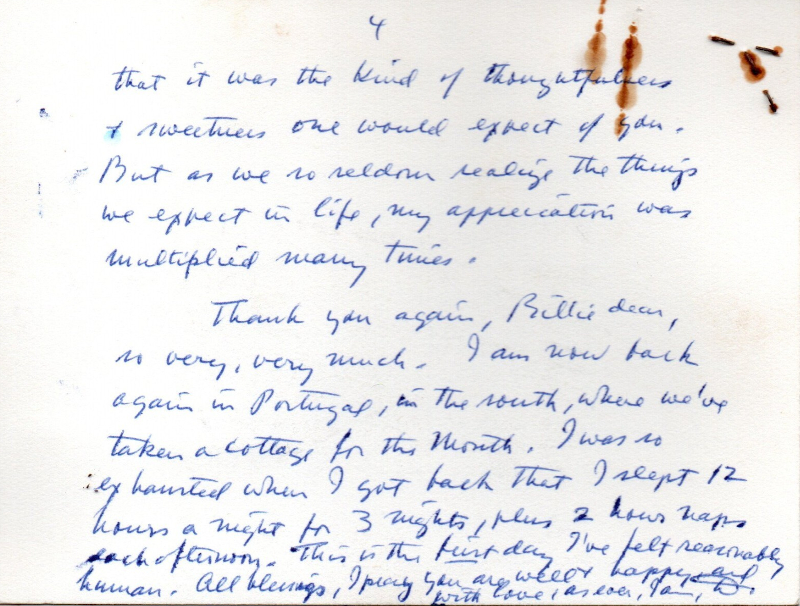 4
that it was the kind of thoughtfulness
& sweetness one would expect of you.
But as we so seldom realize the things
we expect in life, my appreciation was
multiplied many times.
Thank you again, Billie dear,
so very, very much. I am now back
again in Portugal, in the south, where we've
taken a cottage for the month. I was so
exhausted when I got back that I slept 12
hours a night for 3 nights, plus 2 hours naps
each afternoon. This is the first day I've felt reasonably
human. All blessings, I pray you are well & happy
with love, as ever, I am,